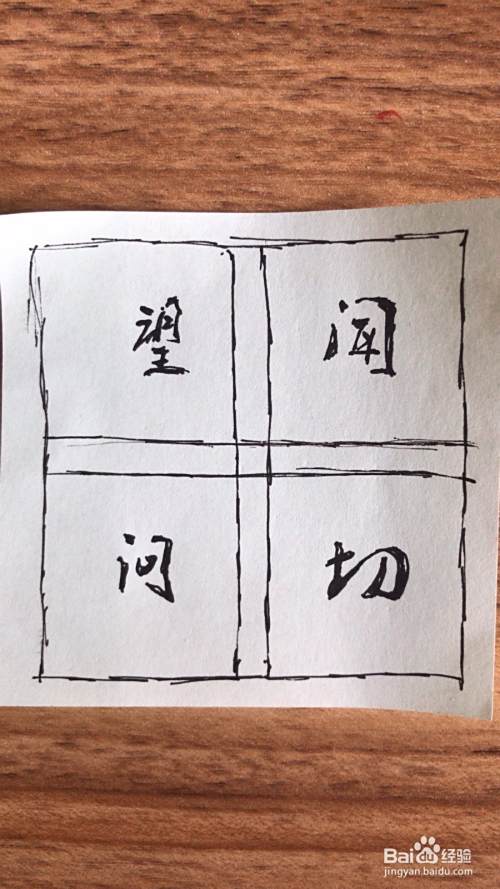 望 闻
问 切
Baidu 经验
jingyan.baidu.com